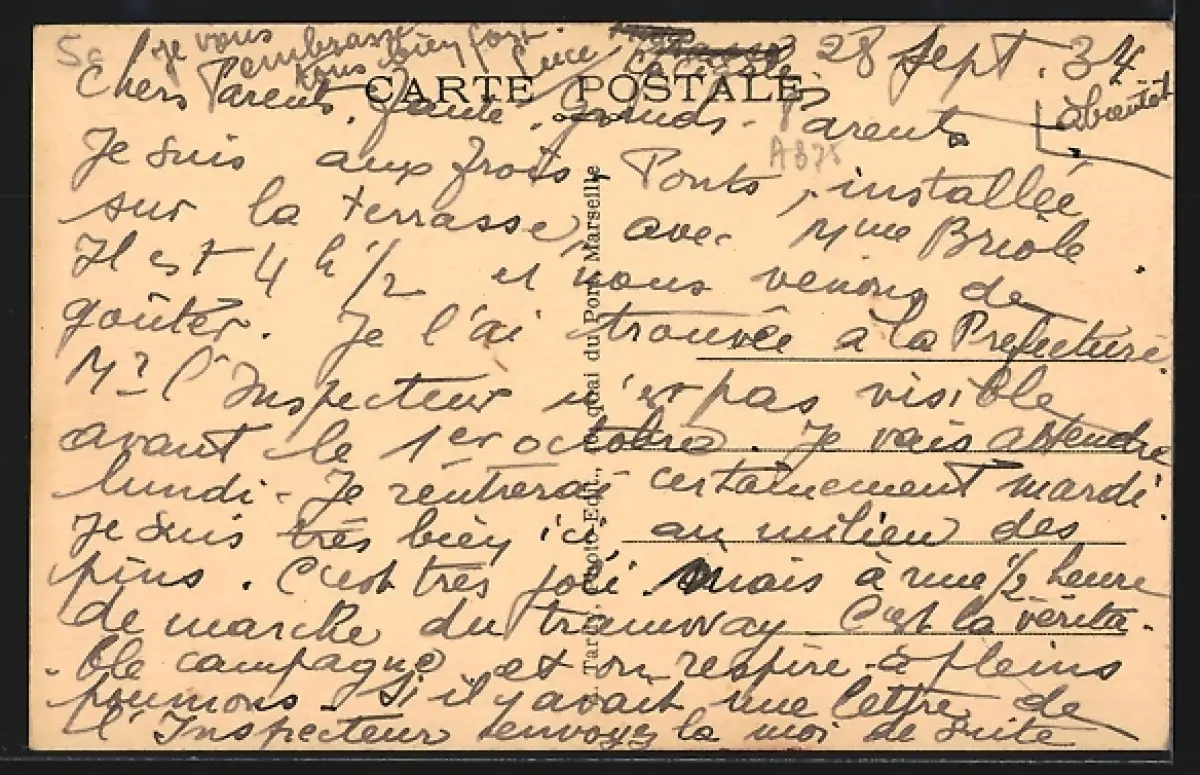 5c
je vous
embrasse
tous bien fort
Luce
28 Sept. 34
CARTE POSTALE
à bientôt
Chers Parents, Grands-Parents
A875
Je suis aux Trois Ponts, installée
sur la terrasse, avec Mme Briole.
Il est 4 h 1/2 et nous venons de
goûter. Je l'ai trouvée à la Préfecture.
Mr l'Inspecteur n'est pas visible
avant le 1er octobre. Je vais attendre
lundi. Je rentrerai certainement mardi.
Je suis très bien ici au milieu des
pins. C'est très joli. Mais à une 1/2 heure
de marche du tramway. C'est la vérita-
ble campagne et on respire à pleins
poumons. Si il y avait une lettre de
l'Inspecteur envoyez la moi de suite
quai du Port, Marseille